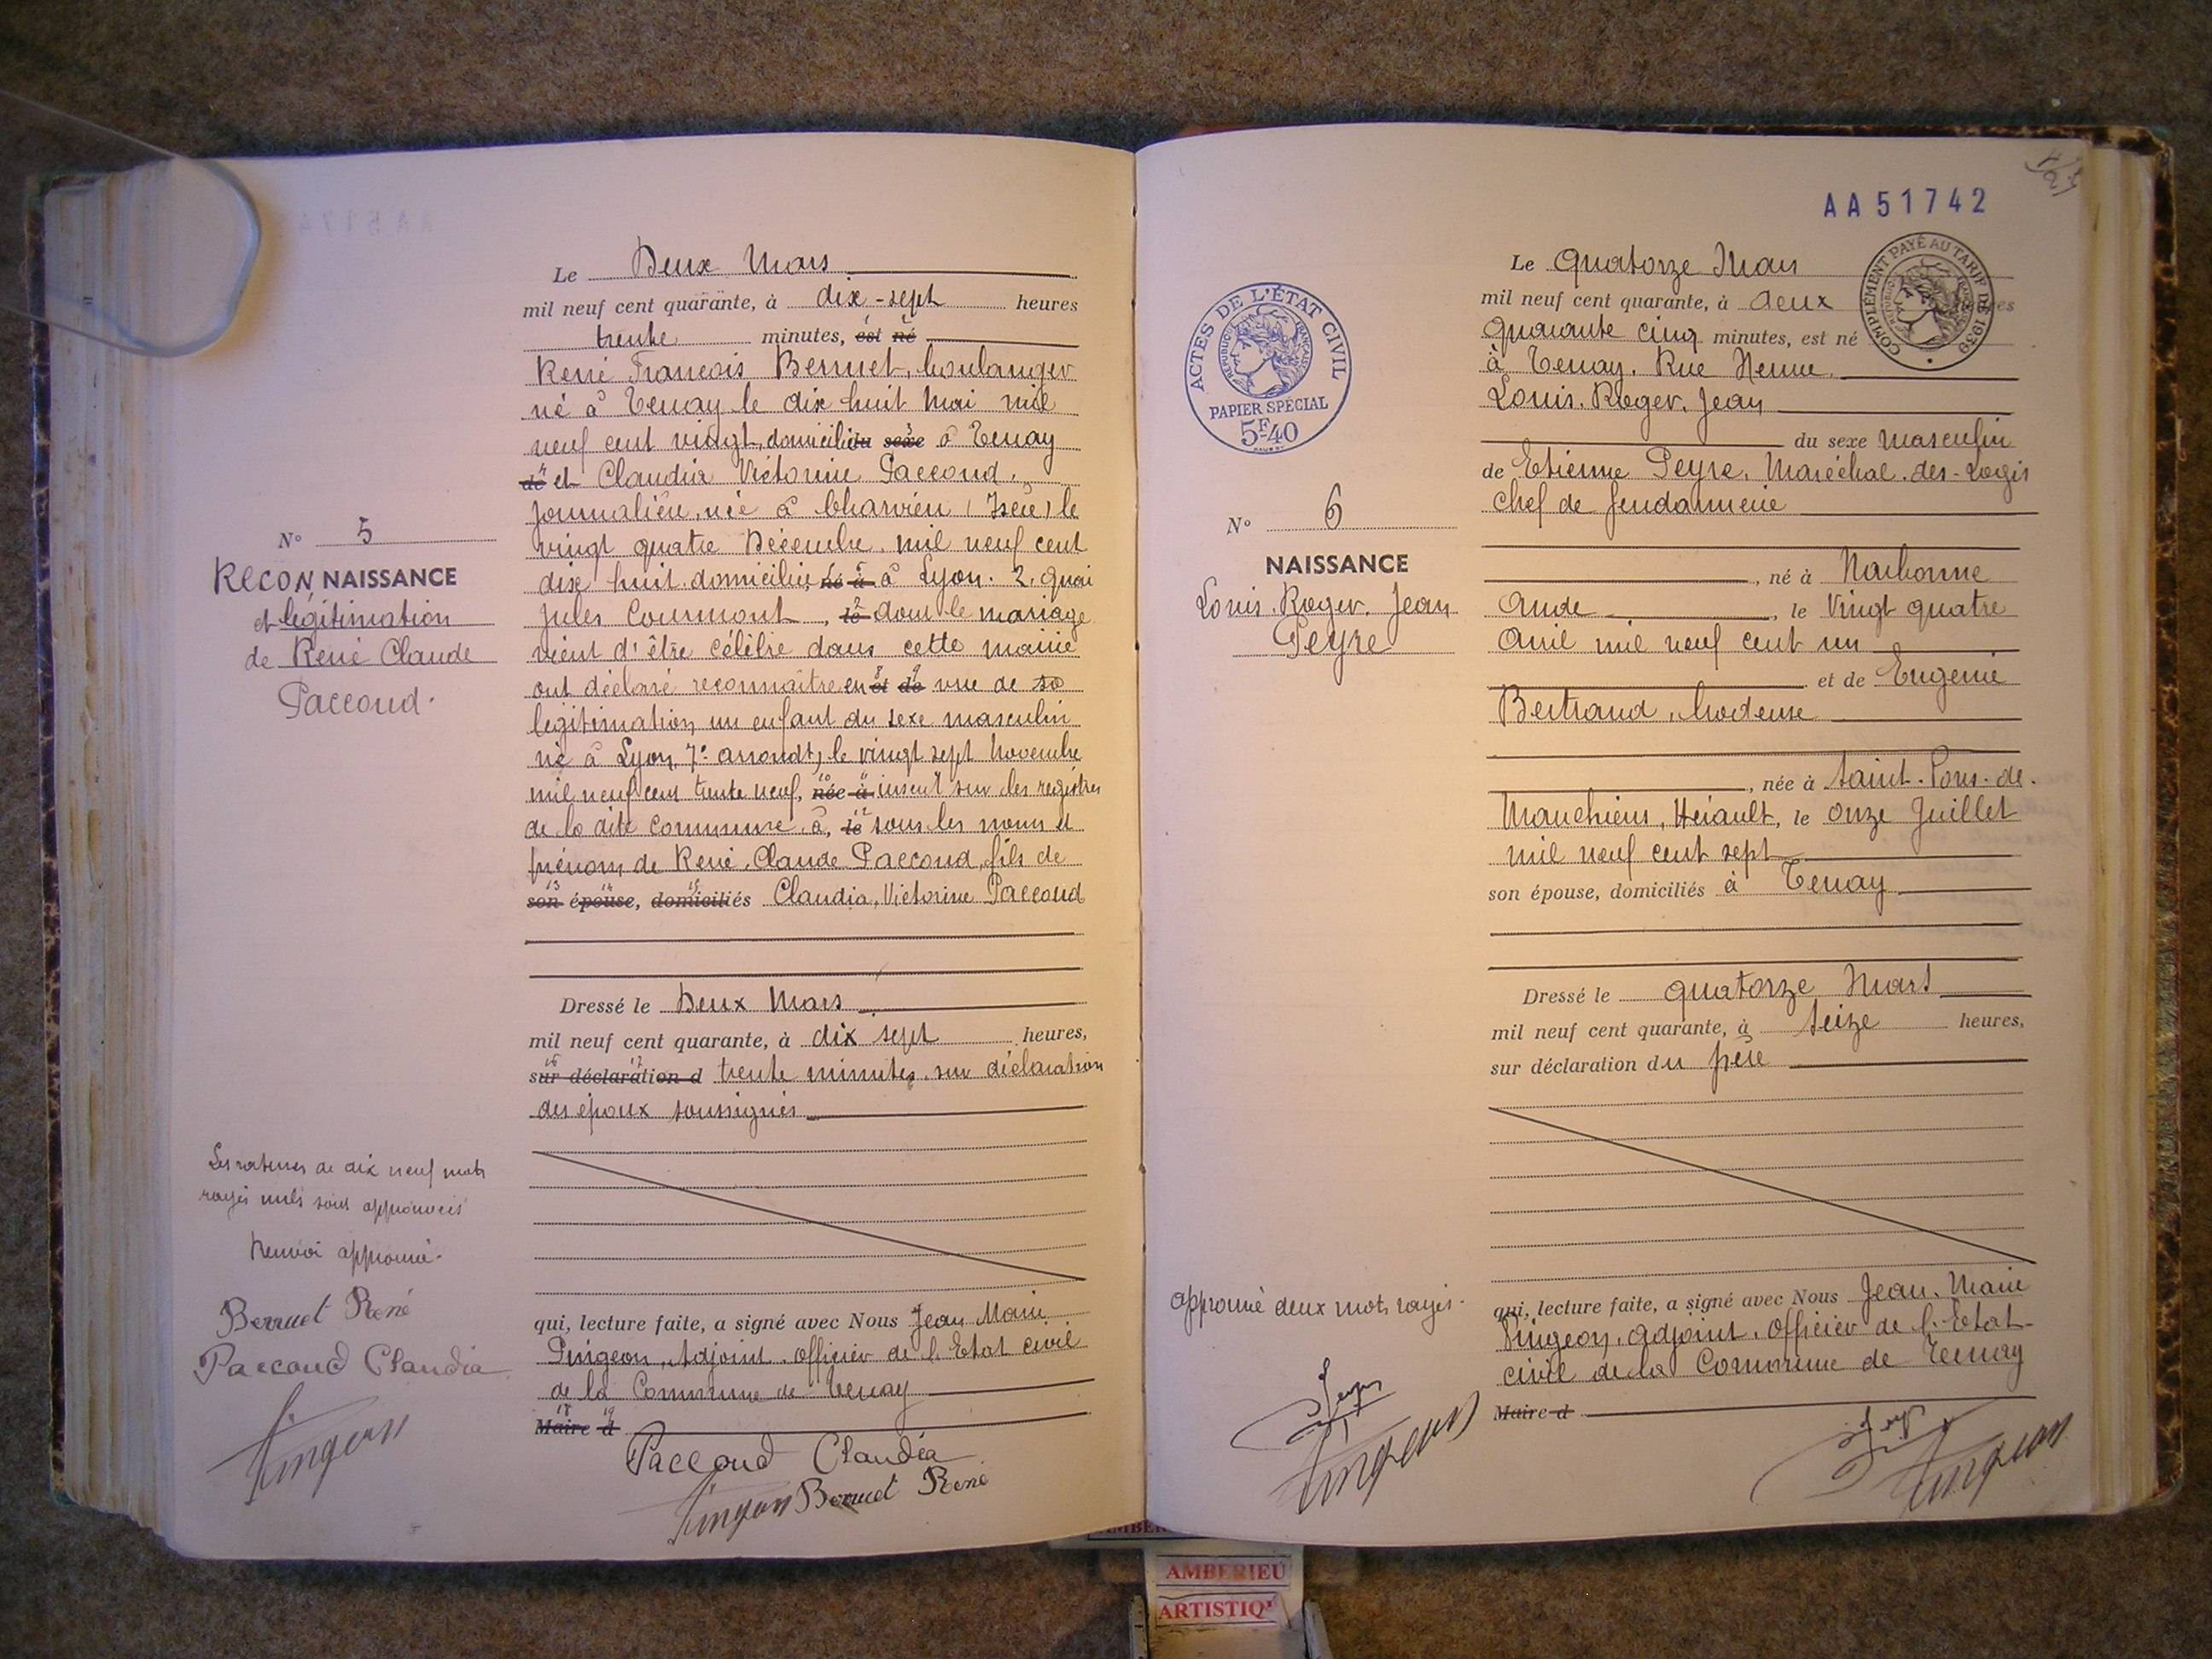 Le Deux Mars
mil neuf cent quarante, à dix-sept heures
trente minutes, est né
René François Berruet, boulanger
né à Tenay le dix huit Mai mil
neuf cent vingt, domicilié du sexe à Tenay
de et Claudia Victorine Paccoud,
journalière, née à Charvieu (Isère) le
vingt quatre Décembre mil neuf cent
dix huit domiciliée né à à Lyon. 2. quai
Jules Courmont, le dont le mariage
vient d'être célébré dans cette mairie
ont déclaré reconnaître en et de vue de sa
légitimation, un enfant du sexe masculin
né à Lyon, 7e arrondt, le vingt sept Novembre
mil neuf cent trente neuf, née à inscrit sur les registres
de la dite commune, à, le sous les noms et
prénoms de René, Claude Paccoud, fils de
son épouse, domiciliés Claudia, Victorine Paccoud
Dressé le Deux Mars
mil neuf cent quarante, à dix sept heures,
sur déclaration d trente minutes, sur déclaration
des époux soussignés
qui, lecture faite, a signé avec Nous Jean Marie
Pingeon, Adjoint, Officier de l'Etat civil
de la Commune de Tenay
Maire d
Paccoud Claudia
Pingeon Berruet René
N° 5
RECONNAISSANCE
et légitimation
de René Claude
Paccoud.
Les ratures de dix neuf mots
rayés nuls sont approuvées
Renvoi approuvé.
Berruet René
Paccoud Claudia
Pingeon
AA51742
Le Quatorze Mars
mil neuf cent quarante, à deux heures
quarante cinq minutes, est né
à Tenay, Rue Neuve
Louis, Roger, Jean
du sexe masculin
de Etienne Peyre, Maréchal-des-Logis
chef de Gendarmerie
, né à Narbonne
Aude, le Vingt quatre
Avril mil neuf cent un
et de Eugénie
Bertrand, brodeuse
, née à Saint-Pons-de-
Mauchiens, Hérault, le onze Juillet
mil neuf cent sept
son épouse, domiciliés à Tenay
Dressé le quatorze Mars
mil neuf cent quarante, à seize heures,
sur déclaration du père
qui, lecture faite, a signé avec Nous Jean, Marie
Pingeon, Adjoint, Officier de l'Etat-
civil de la Commune de Tenay
Maire d
Peyre
Pingeon
COMPLÉMENT PAYÉ AU TARIF DE 1939
ACTES DE L'ÉTAT CIVIL
RÉPUBLIQUE FRANÇAISE
PAPIER SPÉCIAL
5F40
N° 6
NAISSANCE
Louis, Roger, Jean
Peyre
Approuvé deux mots rayés.
Peyre
Pingeon
AMBERIEU
ARTISTIQ'